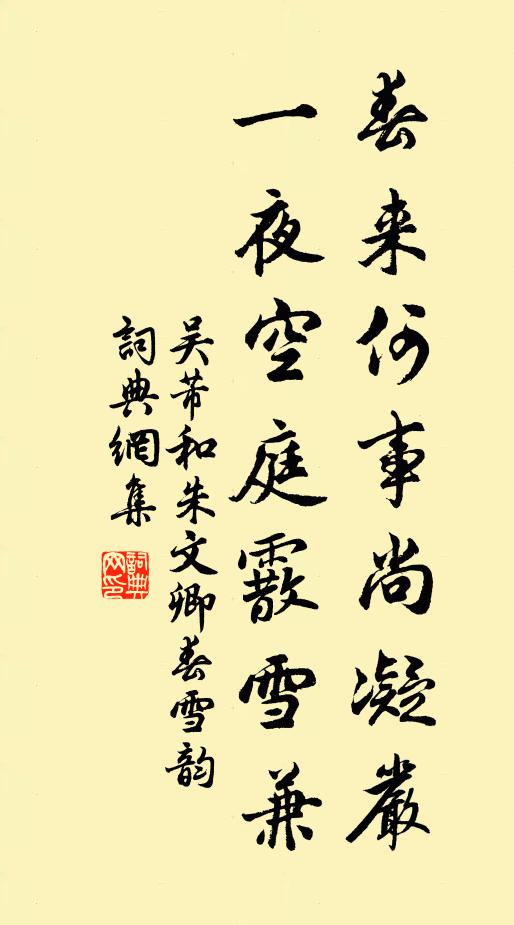 春来何事尚凝嚴
一夜空庭霰雪兼
吴芾和朱文卿春雪韵
詞典網集
詞典網印